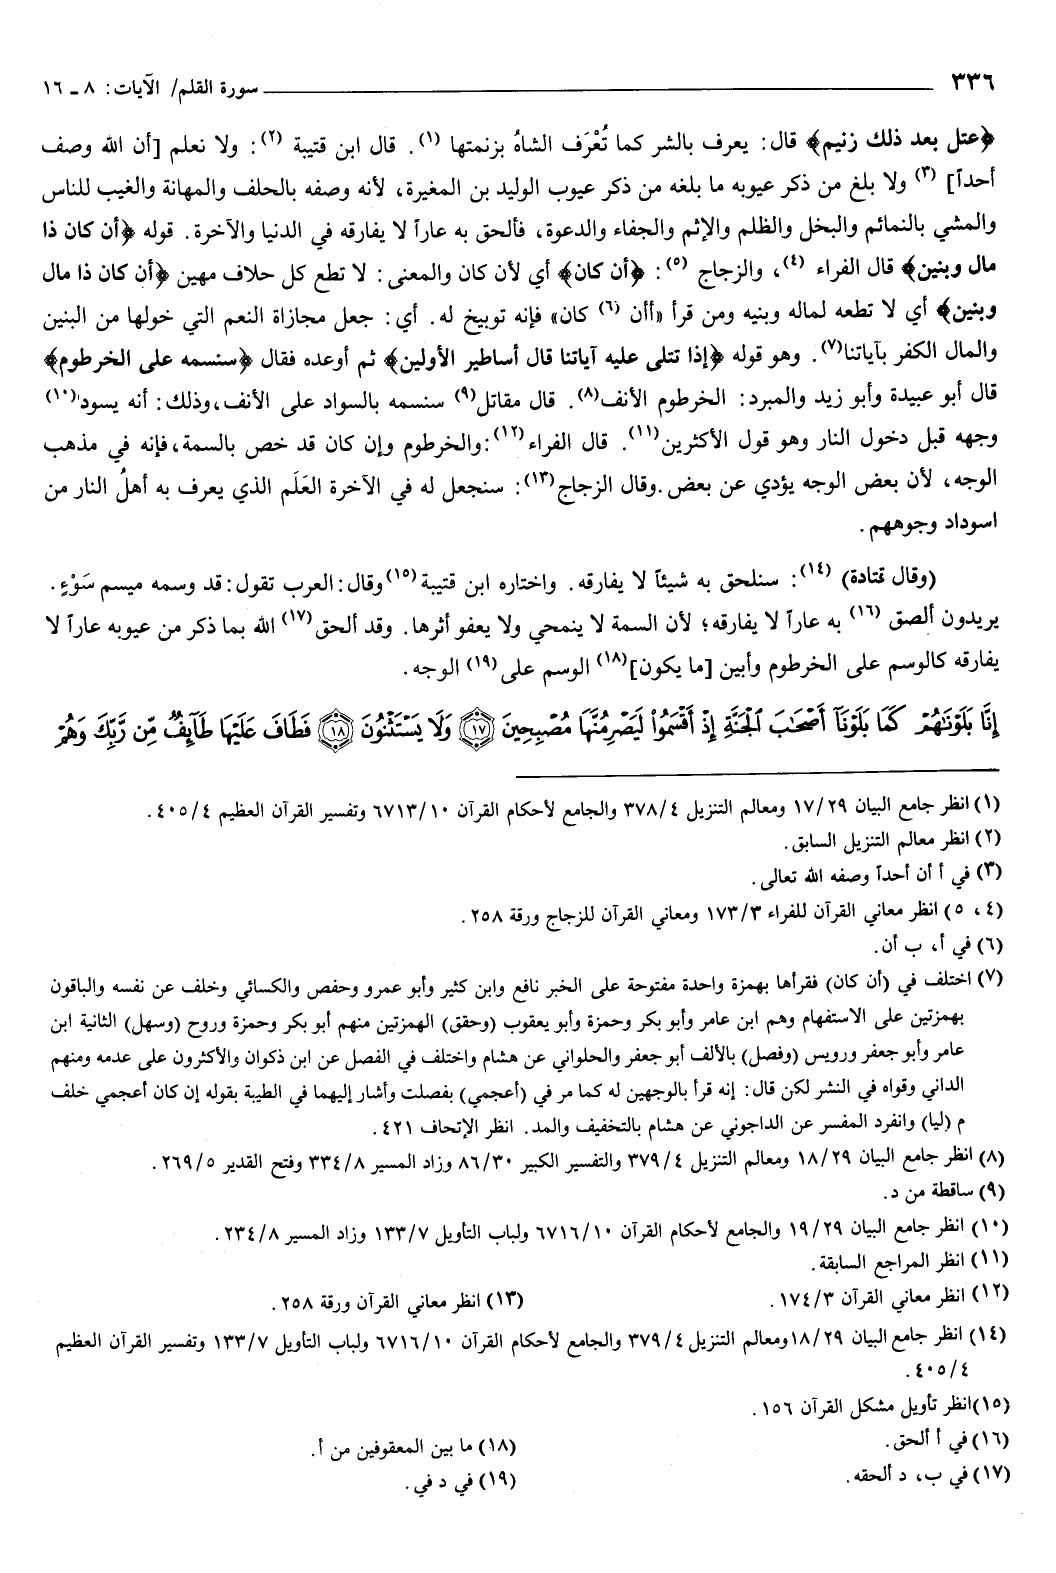 ٣٣٦ سورة القلم/ الآيات: ٨ ـ ١٦
﴿عتل بعد ذلك زنيم﴾ قال: يعرف بالشر كما تُعْرَف الشاهُ بزنمتها (١). قال ابن قتيبة (٢): ولا نعلم [أن الله وصف
أحداً] (٣) ولا بلغ من ذكر عيوبه ما بلغه من ذكر عيوب الوليد بن المغيرة، لأنه وصفه بالحلف والمهانة والغيب للناس
والمشي بالنمائم والبخل والظلم والإثم والجفاء والدعوة، فألحق به عاراً لا يفارقه في الدنيا والآخرة. قوله ﴿أن كان ذا
مال وبنين﴾ قال الفراء (٤)، والزجاج (٥): ﴿أن كان﴾ أي لأن كان والمعنى: لا تطع كل حلاف مهين ﴿أن كان ذا مال
وبنين﴾ أي لا تطعه لماله وبنيه ومن قرأ «أأن (٦) كان» فإنه توبيخ له. أي: جعل مجازاة النعم التي خولها من البنين
والمال الكفر بآياتنا(٧). وهو قوله ﴿إذا تتلى عليه آياتنا قال أساطير الأولين﴾ ثم أوعده فقال ﴿سنسمه على الخرطوم﴾
قال أبو عبيدة وأبو زيد والمبرد: الخرطوم الأنف(٨). قال مقاتل(٩) سنسمه بالسواد على الأنف،وذلك: أنه يسود(١٠)
وجهه قبل دخول النار وهو قول الأكثرين(١١). قال الفراء(١٢):والخرطوم وإن كان قد خص بالسمة،فإنه في مذهب
الوجه، لأن بعض الوجه يؤدي عن بعض.وقال الزجاج(١٣): سنجعل له في الآخرة العَلَم الذي يعرف به أهلُ النار من
اسوداد وجوههم.
(وقال قتادة) (١٤): سنلحق به شيئاً لا يفارقه. واختاره ابن قتيبة (١٥)وقال:العرب تقول:قد وسمه ميسم سَوْءٍ.
يريدون ألصق (١٦) به عاراً لا يفارقه؛ لأن السمة لا ينمحي ولا يعفو أثرها. وقد ألحق(١٧) الله بما ذكر من عيوبه عاراً لا
يفارقه كالوسم على الخرطوم وأبين [ما يكون](١٨) الوسم على (١٩) الوجه.
إِنَّا بَلَوْنَاهُمْ كَمَا بَلَوْنَآ أَصْحَابَ ٱلْجَنَّةِ إِذْ أَقْسَمُوا۟ لَيَصْرِمُنَّهَا مُصْبِحِينَ ﴿١٧﴾ وَلَا يَسْتَثْنُونَ ﴿١٨﴾ فَطَافَ عَلَيْهَا طَآئِفٌ مِّن رَّبِّكَ وَهُمْ
(١) انظر جامع البيان ١٧/٢٩ ومعالم التنزيل ٣٧٨/٤ والجامع لأحكام القرآن ٦٧١٣/١٠ وتفسير القرآن العظيم ٤٠٥/٤.
(٢) انظر معالم التنزيل السابق.
(٣) في أ أن أحداً وصفه الله تعالى.
(٤، ٥) انظر معاني القرآن للفراء ١٧٣/٣ ومعاني القرآن للزجاج ورقة ٢٥٨.
(٦) في أ، ب أن.
(٧) اختلف في (أن كان) فقرأها بهمزة واحدة مفتوحة على الخبر نافع وابن كثير وأبو عمرو وحفص والكسائي وخلف عن نفسه والباقون
بهمزتين على الاستفهام وهم ابن عامر وأبو بكر وحمزة وأبو يعقوب (وحقق) الهمزتين منهم أبو بكر وحمزة وروح (وسهل) الثانية ابن
عامر وأبو جعفر ورويس (وفصل) بالألف أبو جعفر والحلواني عن هشام واختلف في الفصل عن ابن ذكوان والأكثرون على عدمه ومنهم
الداني وقواه في النشر لكن قال: إنه قرأ بالوجهين له كما مر في (أعجمي) بفصلت وأشار إليهما في الطيبة بقوله إن كان أعجمي خلف
م (ليا) وانفرد المفسر عن الداجوني عن هشام بالتخفيف والمد. انظر الإتحاف ٤٢١.
(٨) انظر جامع البيان ١٨/٢٩ ومعالم التنزيل ٣٧٩/٤ والتفسير الكبير ٨٦/٣٠ وزاد المسير ٣٣٤/٨ وفتح القدير ٢٦٩/٥.
(٩) ساقطة من د.
(١٠) انظر جامع البيان ١٩/٢٩ والجامع لأحكام القرآن ٦٧١٦/١٠ ولباب التأويل ١٣٣/٧ وزاد المسير ٢٣٤/٨.
(١١) انظر المراجع السابقة.
(١٢) انظر معاني القرآن ١٧٤/٣. (١٣) انظر معاني القرآن ورقة ٢٥٨.
(١٤) انظر جامع البيان ١٨/٢٩ومعالم التنزيل ٣٧٩/٤ والجامع لأحكام القرآن ٦٧١٦/١٠ ولباب التأويل ١٣٣/٧ وتفسير القرآن العظيم
٤٠٥/٤.
(١٥)انظر تأويل مشكل القرآن ١٥٦.
(١٦) في أ ألحق. (١٨) ما بين المعقوفين من أ.
(١٧) في ب، د ألحقه. (١٩) في د في.